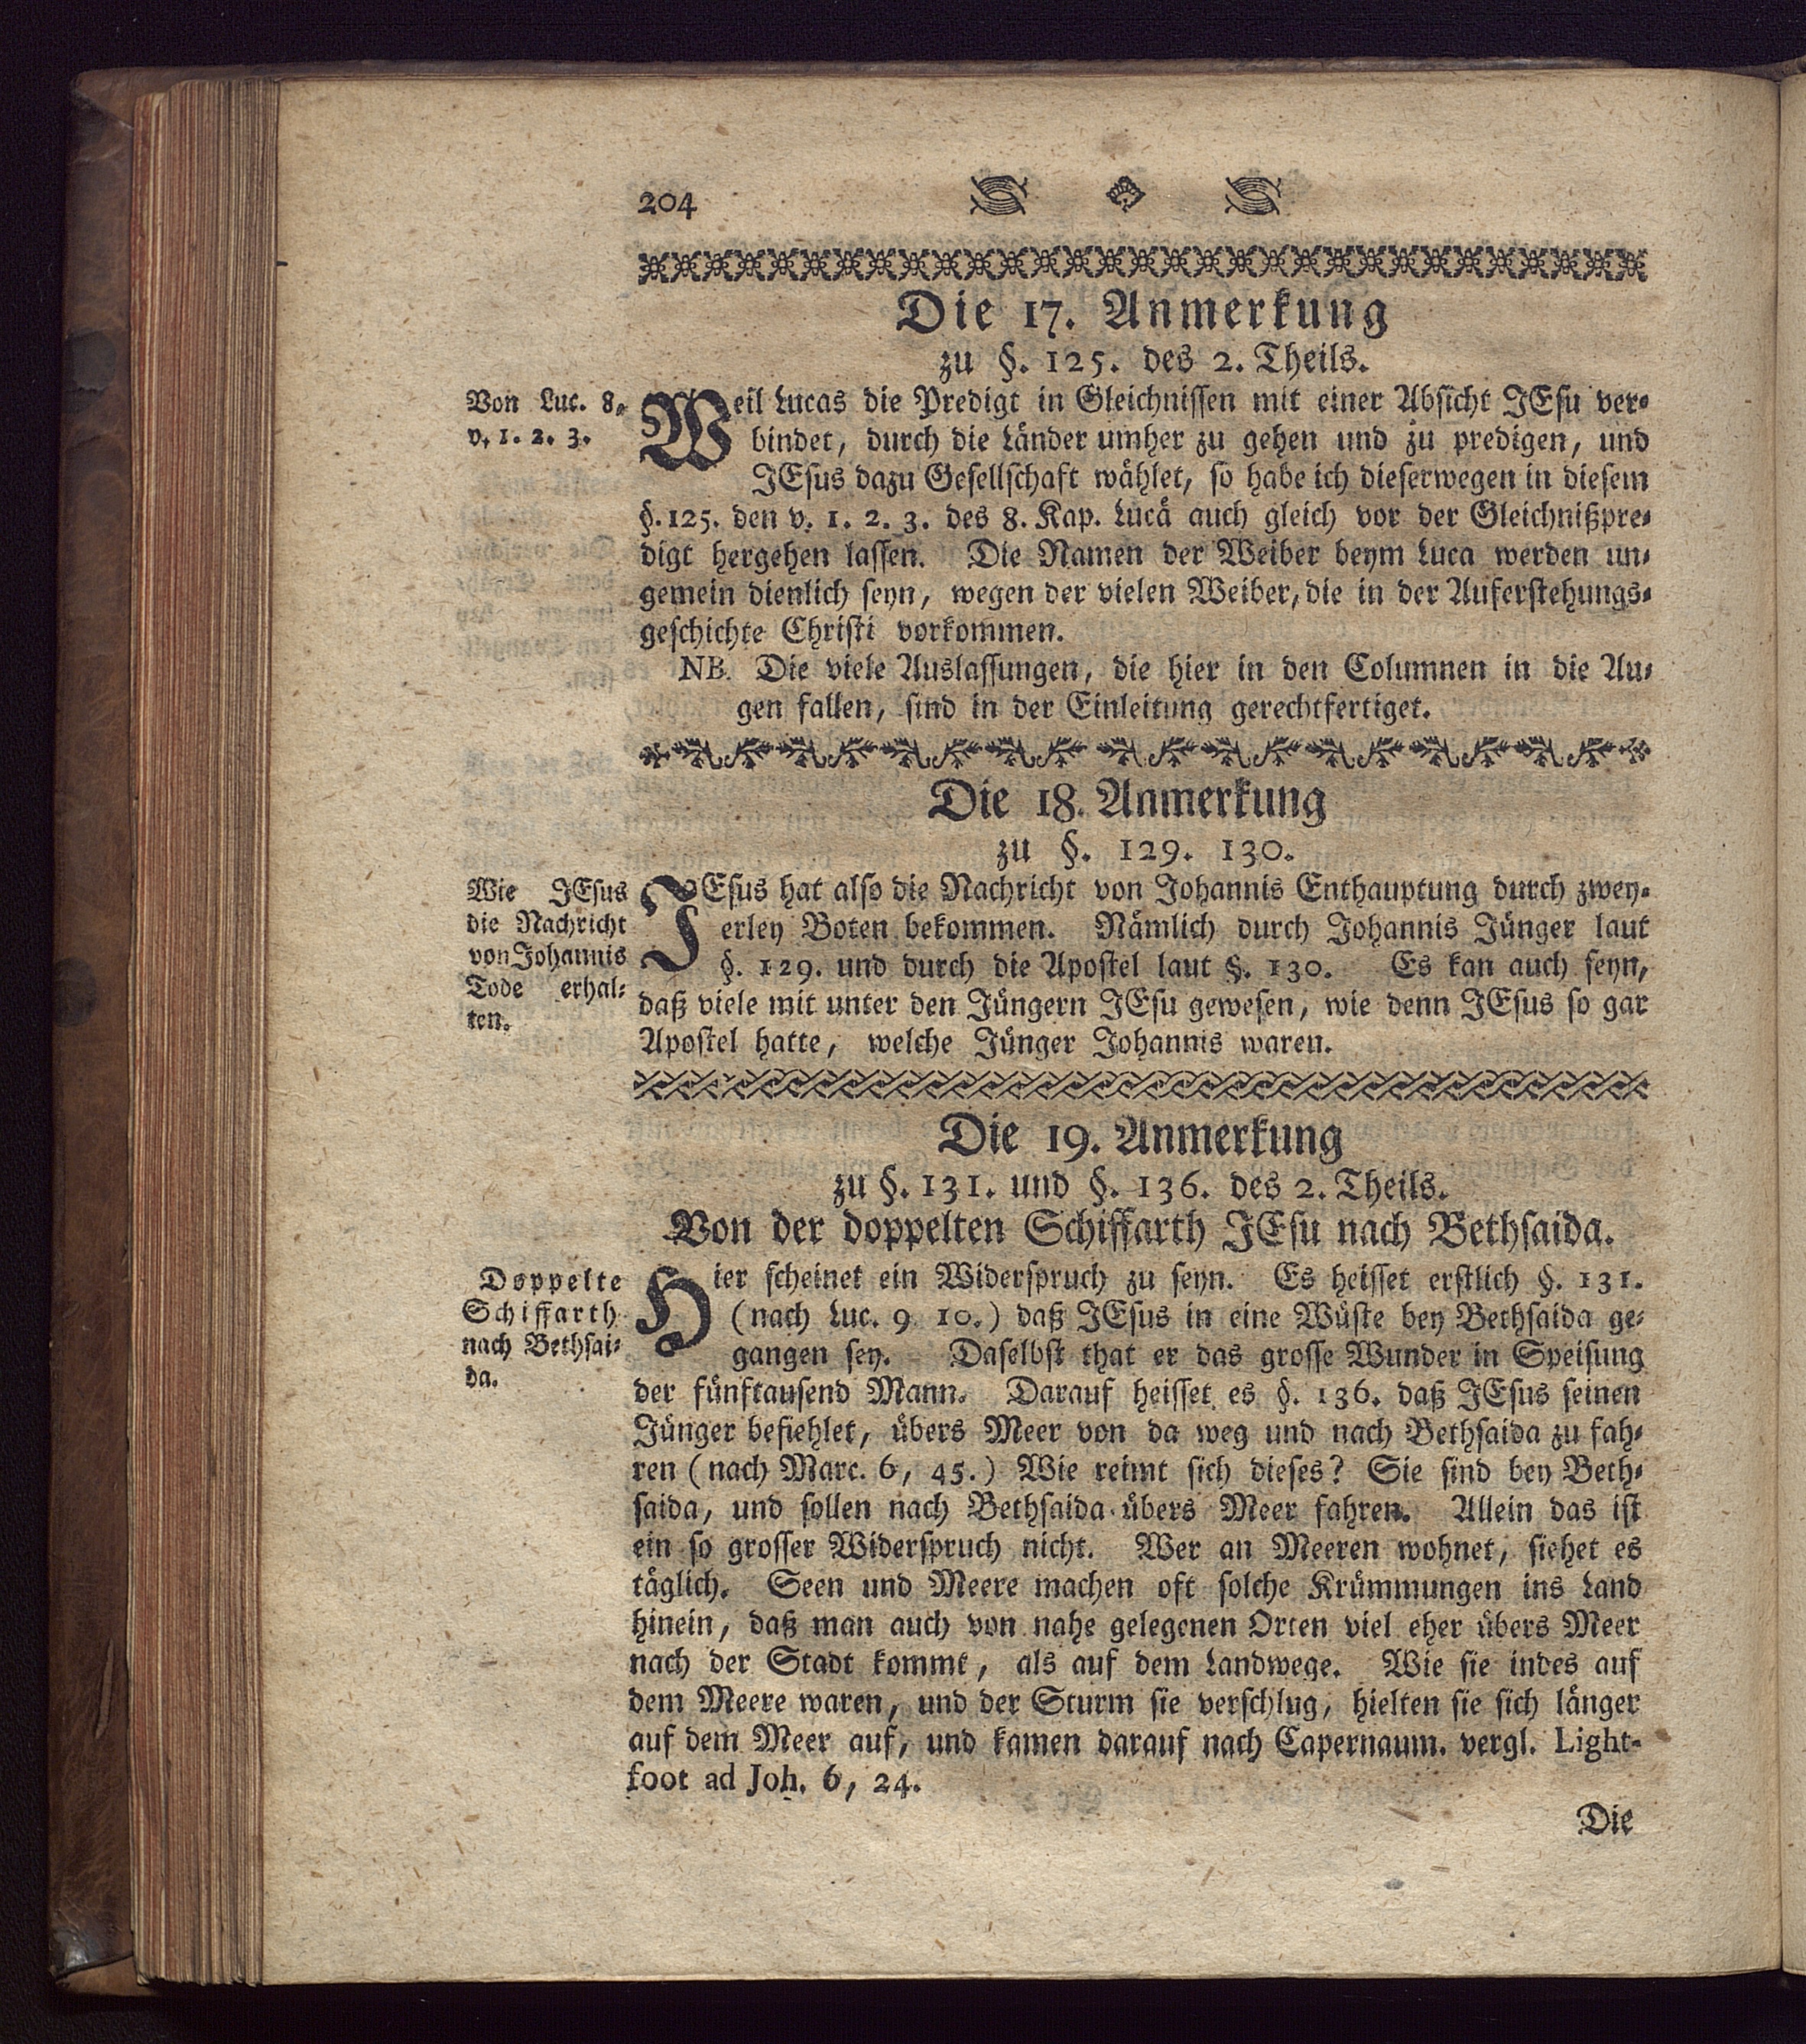 204
Die 17. Anmerkung
zu §. 125. des 2. Theils.
Von Luc. 8.
v. 1. 2. 3.
Weil Lucas die Predigt in Gleichnissen mit einer Absicht JEsu ver-
bindet, durch die Länder umher zu gehen und zu predigen, und
JEsus dazu Gesellschaft wählet, so habe ich dieserwegen in diesem
§. 125. den v. 1. 2. 3. des 8. Kap. Lucä auch gleich vor der Gleichnißpre-
digt hergehen lassen. Die Namen der Weiber beym Luca werden un-
gemein dienlich seyn, wegen der vielen Weiber, die in der Auferstehungs-
geschichte Christi vorkommen.
NB. Die viele Auslassungen, die hier in den Columnen in die Au-
gen fallen, sind in der Einleitung gerechtfertiget.
Die 18. Anmerkung
zu §. 129. 130.
Wie JEsus
die Nachricht
von Johannis
Tode erhal-
ten.
JEsus hat also die Nachricht von Johannis Enthauptung durch zwey-
erley Boten bekommen. Nämlich durch Johannis Jünger laut
§. 129. und durch die Apostel laut §. 130. Es kan auch seyn,
daß viele mit unter den Jüngern JEsu gewesen, wie denn JEsus so gar
Apostel hatte, welche Jünger Johannis waren.
Die 19. Anmerkung
zu §. 131. und §. 136. des 2. Theils.
Von der doppelten Schiffarth JEsu nach Bethsaida.
Doppelte
Schiffarth
nach Bethsai-
da.
Hier scheinet ein Widerspruch zu seyn. Es heisset erstlich §. 131.
(nach Luc. 9 10.) daß JEsus in eine Wüste bey Bethsaida ge-
gangen sey. Daselbst that er das grosse Wunder in Speisung
der fünftausend Mann. Darauf heisset es §. 136. daß JEsus seinen
Jünger befiehlet, übers Meer von da weg und nach Bethsaida zu fah-
ren (nach Marc. 6, 45.) Wie reimt sich dieses? Sie sind bey Beth-
saida, und sollen nach Bethsaida übers Meer fahren. Allein das ist
ein so grosser Widerspruch nicht. Wer an Meeren wohnet, siehet es
täglich. Seen und Meere machen oft solche Krümmungen ins Land
hinein, daß man auch von nahe gelegenen Orten viel eher übers Meer
nach der Stadt kommt, als auf dem Landwege. Wie sie indes auf
dem Meere waren, und der Sturm sie verschlug, hielten sie sich länger
auf dem Meer auf, und kamen darauf nach Capernaum. vergl. Light-
foot ad Joh. 6, 24.
Die